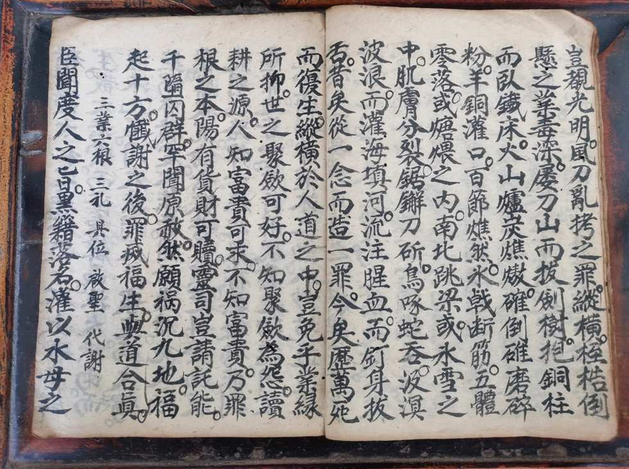 豈覩光明。風刀亂拷之罪。縱橫桎梏倒
懸之業毒深。屡刀山而拔倒樹。抱銅柱
而臥鐵床。火山爐炭燋熬。碓倒碓磨碎
粉。羊銅灌口。百節燋然。氷戟断筋。五體
零落。或煻煨之内。南北跳梁。或氷雪之
中。肌膚分裂。鋸觧刀斫。鳥啄蛇吞。波溟
波浪。而灌海填河。流注腥血。而釘身拔
舌。昔矣從一念而造一罪。今矣歷萬死
而復生。縱橫於人道之中。豈免乎業緣
所抑。世之聚斂可好。不知聚斂為怨讀
耕之源。人知富貴可求。不知富貴乃罪
根之本。陽有貨財可贖。靈司豈請託能
千。酆囚群罕聞原赦。然願禍沉九地。福
起十方。懺謝之後。罪滅福生。與道合眞。
三業六根 三礼 具位 啟聖 代謝
臣聞度人之旨。黑籍落名。濯以水母之